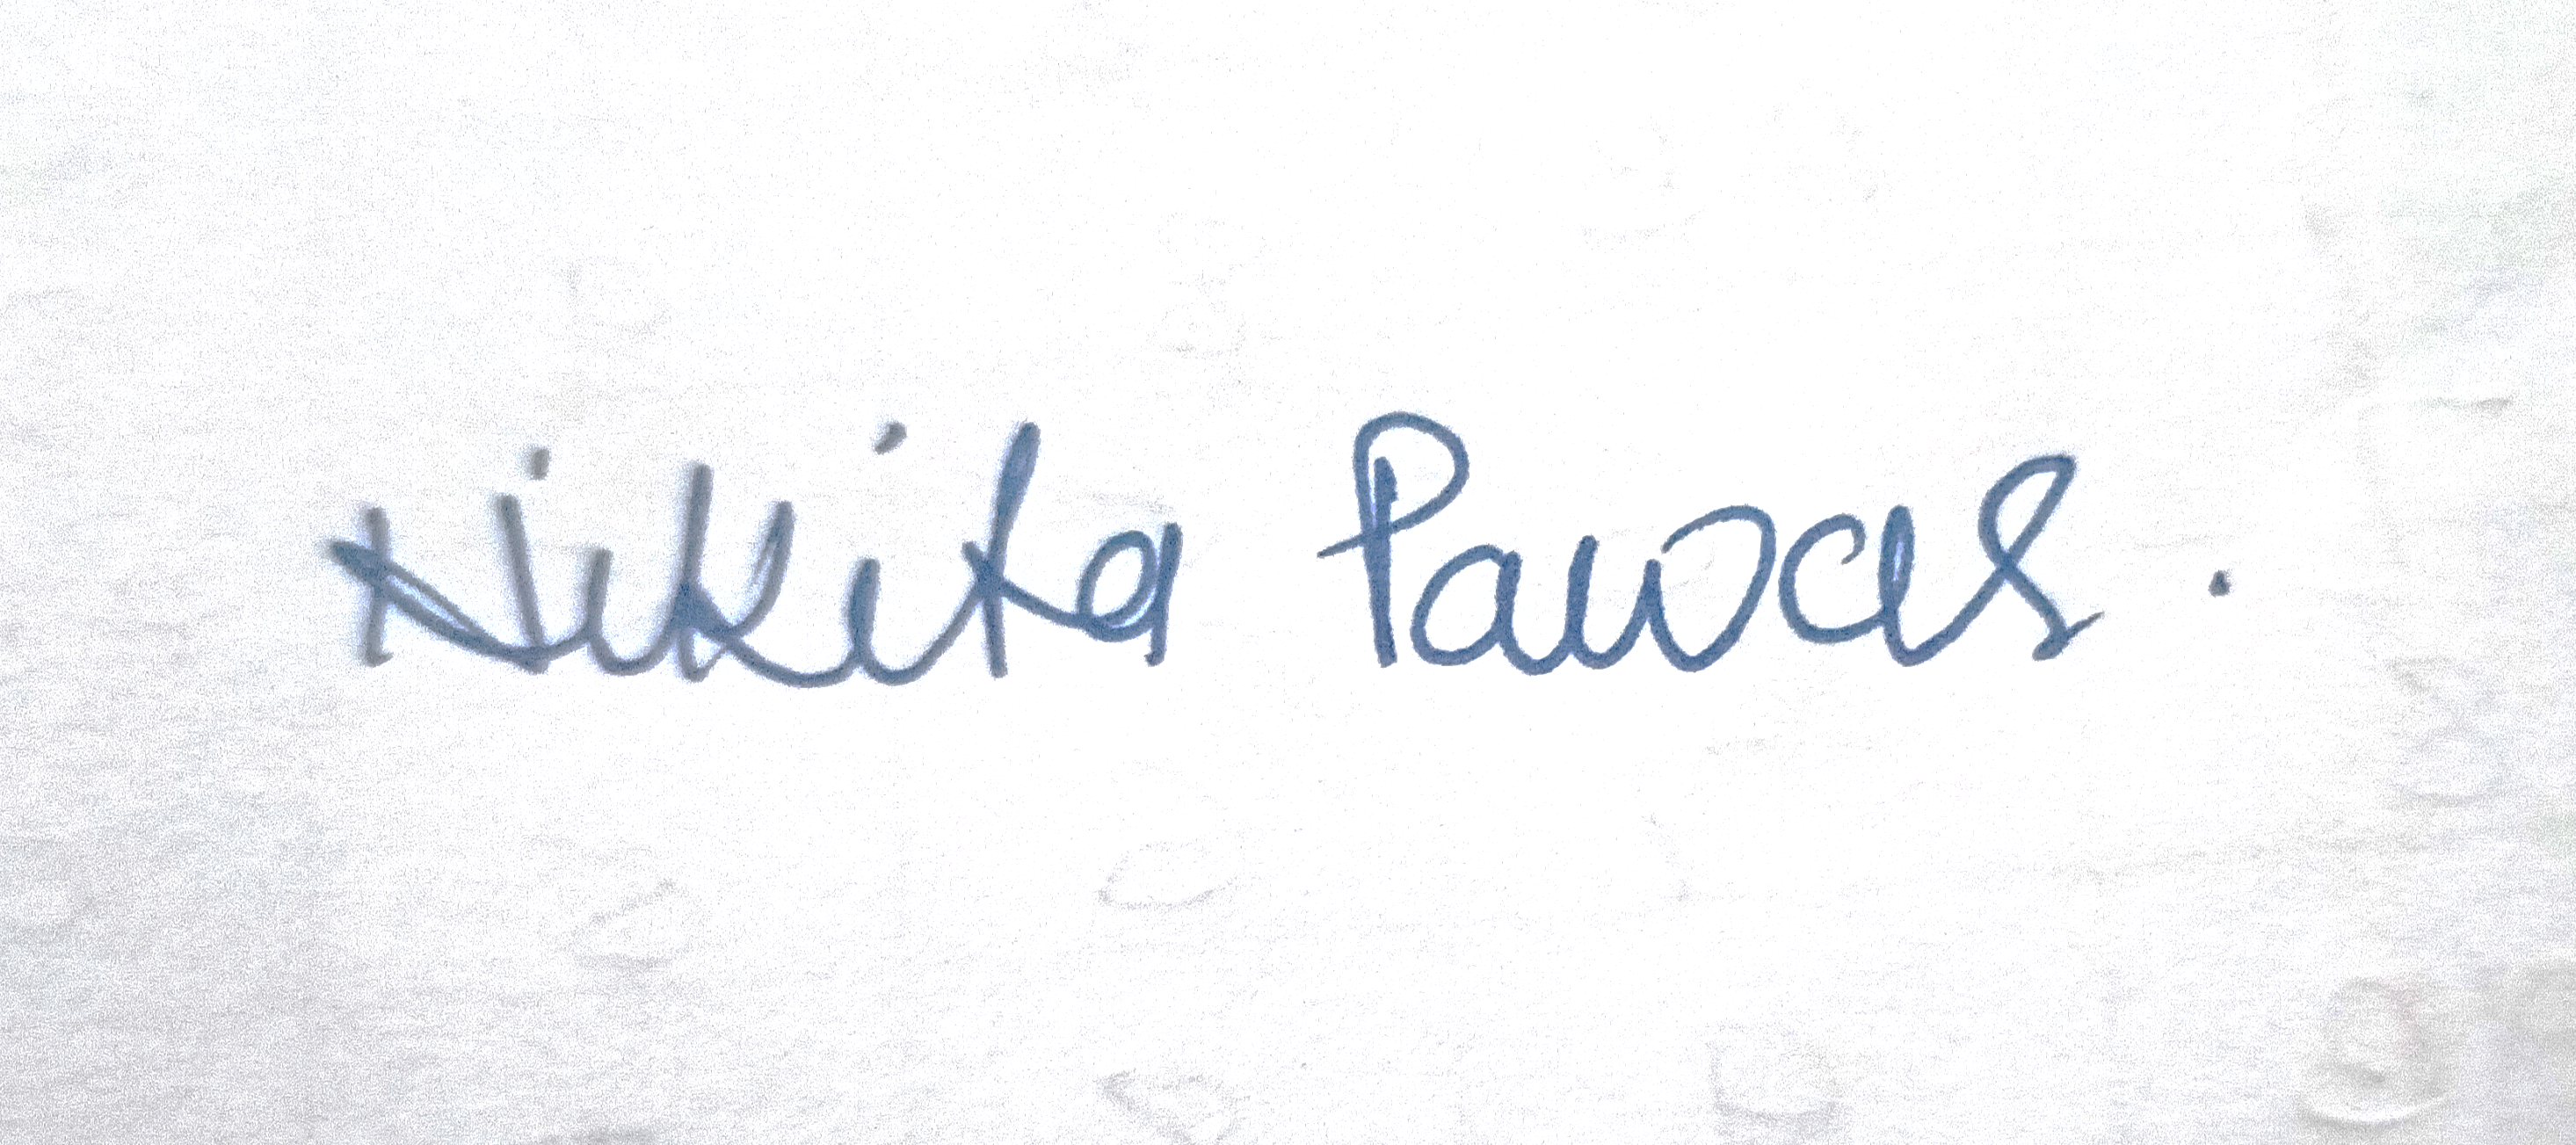 Nikita Pawar.